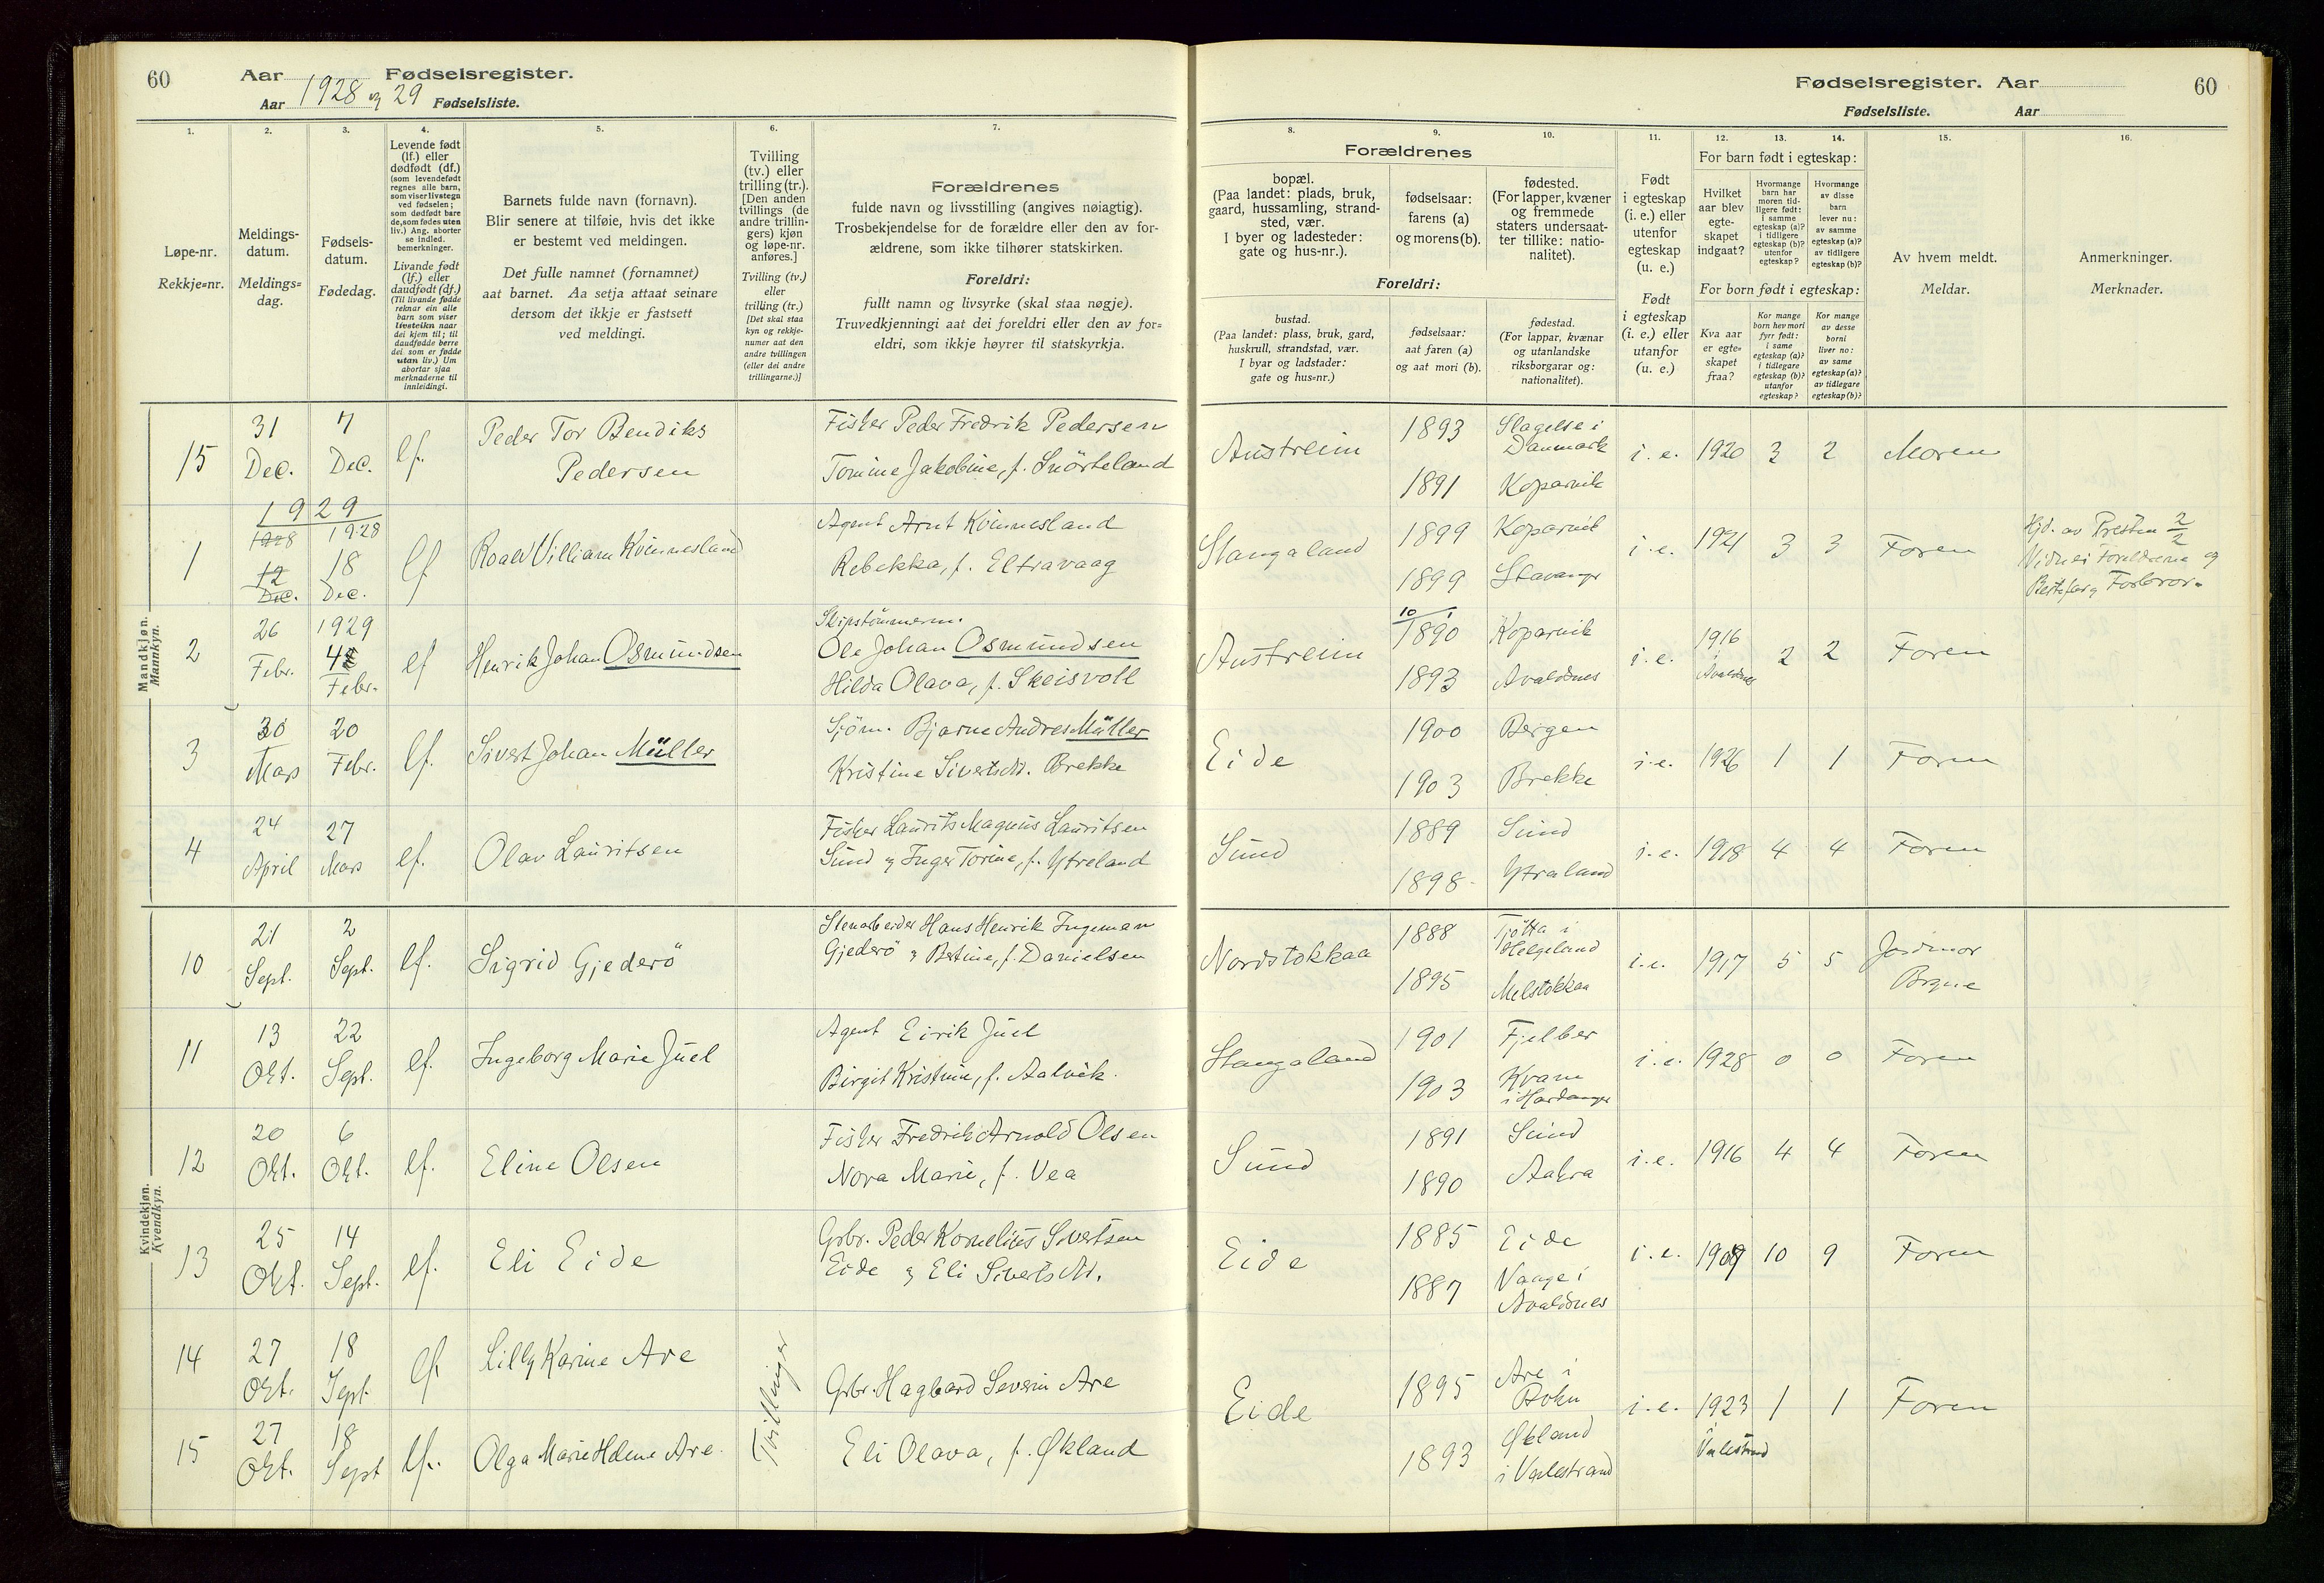 60
Aar
Fødselsregister.
Aar 1928 og 29 Fødselsliste.
1.
2.
3.
4.
5.
6.
7.
Løpe-nr.
Rekkje=nr.
Meldings-
datum.
Meldings=
dag.
Fødsels-
datum.
Fødedag.
Levende født
(lf.) eller
dødfødt (df.)
(som levendefødt
regnes alle barn,
som viser livstegn
ved fødselen;
som dødfødt bare
de, som fødes uten
liv.) Ang. aborter
se indled.
bemerkninger.
Livande født
(lf.) eller
daudfødt (df.)
(Til livande fødde
reknar ein alle
born som viser
livsteikn naar
dei kjem til; til
daudfødde berre
dei som er fødde
utan liv.) Um
abortar sjaa
merknaderne til
innleidingi.
Barnets fulde navn (fornavn).
Blir senere at tilføie, hvis det ikke
er bestemt ved meldingen.
Det fulle namnet (fornamnet)
aat barnet. Aa setja attaat seinare
dersom det ikkje er fastsett
ved meldingi.
Tvilling
(tv.) eller
trilling (tr.).
[Den anden
tvillings (de
andre trillin-
gers) kjøn
og løpe-nr.
anføres.]
Tvilling (tv.)
eller
trilling (tr.)
[Det skal staa
kyn og rekkje-
numer aat den
andre tvillingen
(eller dei andre
trillingarne.)]
Forældrenes
fulde navn og livsstilling (angives nøiagtig).
Trosbekjendelse for de forældre eller den av for-
ældrene, som ikke tilhører statskirken.
Foreldri:
fullt namn og livsyrke (skal staa nøgje).
Truvedkjenningi aat dei foreldri eller den av for=
eldri, som ikkje høyrer til statskyrkja.
Mandkjøn.
Mannkyn.
15
31
Dec.
7
Dec.
lf.
Peder Tor Bendiks
Pedersen
Fisker Peder Fredrik Pedersen
Tomine Jakobine, f. Snörteland
1929
1
1928
12
Dec.
1928
18
Dec.
lf
Roald William Kvinnesland
Agent Arnt Kvinnesland
Rebekka, f. Eltravaag
2
26
Febr.
1929
4
Febr.
lf
Henrik Johan Osmundsen
Skipstömmerm.
Ole Johan Osmundsen
Hilda Olava, f. Skeisvoll
3
30
Mars
20
Febr.
lf.
Sivert Johan Müller
Sjöm. Bjarne Andres Müller
Kristine Sivertsdt. Brekke
4
24
April
27
Mars
lf.
Olav Lauritsen
Fisker Laurits Magnus Lauritsen
Sund og Inger Torine, f. Ytreland
Kvindekjøn.
Kvendkyn.
10
21
Sept.
2
Sept.
lf.
Sigrid Gjederö
Stenarbeider Hans Henrik Ingeman
Gjederö og Bertine, f. Danielsen
11
13
Okt.
22
Sept.
lf.
Ingeborg Marie Juel
Agent Eirik Juel
Birgit Kristine, f. Aalvik.
12
20
Okt.
6
Okt.
lf.
Eline Olsen
Fisker Fredrik Arnold Olsen
Nora Marie, f. Vea
13
25
Okt.
14
Sept.
lf.
Eli Eide
Grbr. Peder Kornelius Sivertsen
Eide og Eli Sivertsdt.
14
27
Okt.
18
Sept.
lf.
Lilly Karine Are
Tvillinger
Grbr. Hagbard Severin Are
15
27
Okt.
18
Sept
lf.
Olga Marie Helene Are.
Eli Olava, f. Økland
Fødselsregister. Aar
60
Fødselsliste.
Aar
8.
9.
10.
11.
12.
13.
14.
15.
16.
Forældrenes
bopæl.
(Paa landet: plads, bruk,
gaard, hussamling, strand-
sted, vær.
I byer og ladesteder:
gate og hus-nr.).
fødselsaar:
farens (a)
og morens (b).
fødested.
(For lapper, kvæner
og fremmede
staters undersaat-
ter tillike: natio-
nalitet).
Foreldri:
bustad.
(Paa landet: plass, bruk, gard,
huskrull, strandstad, vær.
I byar og ladstader:
gate og hus=nr.)
fødselsaar:
aat faren (a)
og aat mori (b).
fødestad.
(For lappar, kvænar
og utanlandske
riksborgarar og:
nationalitet).
Født
i egteskap
(i. e.) eller
utenfor
egteskap
(u. e.)
Født
i egteskap
(i. e.) eller
utanfor
(u. e.)
For barn født i egteskap:
Hvilket
aar blev
egte-
skapet
indgaat?
Hvormange
barn har
moren tid-
ligere født:
i samme
egteskap (a)?
i tidligere
egteskap (b)?
utenfor
egteskap?
Hvormange
av disse
barn
lever nu:
av samme
egteskap (a)?
av tidligere
egteskap (b)?
For born født i egteskap:
Kva aar
er egte=
skapet
fraa?
Kor mange
born hev mori
fyrr født:
i same
egteskap (a)?
i tidlegare
egteskap (b)?
utanfor
egteskap?
Kor mange
av desse
borni
liver no:
av same
egteskap (a)?
av tidlegare
egteskap (b)?
Av hvem meldt.
Meldar.
Anmerkninger.
Merknader.
Austreim
1893
1891
Slagelse i
Danmark
Kopervik
i. e.
1920
3
2
Moren
Stangaland
1899
1899
Kopervik
Stavanger
i. e.
1921
3
3
Faren
Hjd. av Presten 2/2
Vidnei Foreldrene og
Austreim
10/1
1890
1893
Kopervik
Avaldsnes
i. e.
1916
i
Avaldsnes
2
2
Faren
Eide
1900
1903
Bergen
Brekke
i. e.
1926
1
1
Faren
Sund
1889
1898
Sund
Ytraland
i. e.
1918
4
4
Faren
Nordstokkaa
1888
1895
Tjötta i
Helgeland
Melstokkaa
i. e.
1917
5
5
Jordmor
Bryne
Stangaland
1901
1903
Fjelber
Kvam
i Hardanger
i. e.
1928
0
0
Faren
Sund
1891
1890
Sund
Aakra
i. e.
1916
4
4
Faren
Eide
1885
1887
Eide
Vaage i
Avaldsnes
i. e.
1909
10
9
Faren
Eide
1895
1893
Are i
Bokn
Økland
i Valestrand
i. e.
1923
i
Valestrand
1
1
Faren